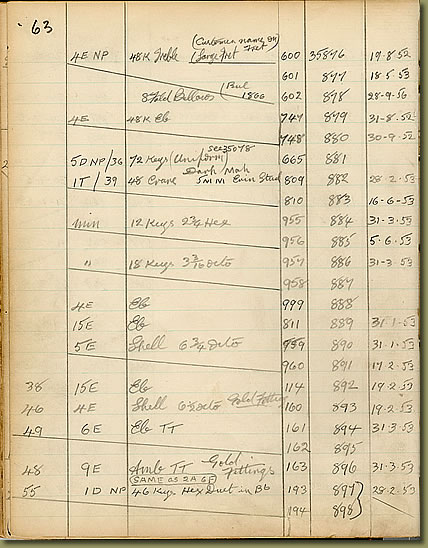 63
(Customers name on Fret
4E NP 48K Treble (Large Fret 600 35876 19.8.52
601 877 18.5.53
8 Fold Bellows 602 878 28-9-56
4E 48K Eb 747 879 31-8-52
748 880 30-9.52
see 35078
5D NP/36 72 Keys (Uniform) 665 881
Dark Mah
1T / 39 48 Crane 5 N M Erin Stud 809 882 28.2.53
810 883 16-6-53
min 12 Keys 2¾ Hex 955 884 31-3.53
956 885 5.6.53
" 18 Keys 957 886 31-3.53
958 887
4E Eb 999 888
15E Eb 811 889 31-1-53
5E Shell 6¾ Octo 959 890 31.1.53
960 891 17.2.53
38 15E Eb 114 892 19.2.53
46 4E Shell 6½ Octo Gold Fittings 160 893 19.2.53
49 6E Eb TT 161 894 31.3.53
162 895
48 9E Amb TT Gold in Fittings 163 896 31.3.53
(SAME as 2A 6F)
55 1D NP 46 Keys Hex Duet in Bb 193 897 28-2.53
194 898